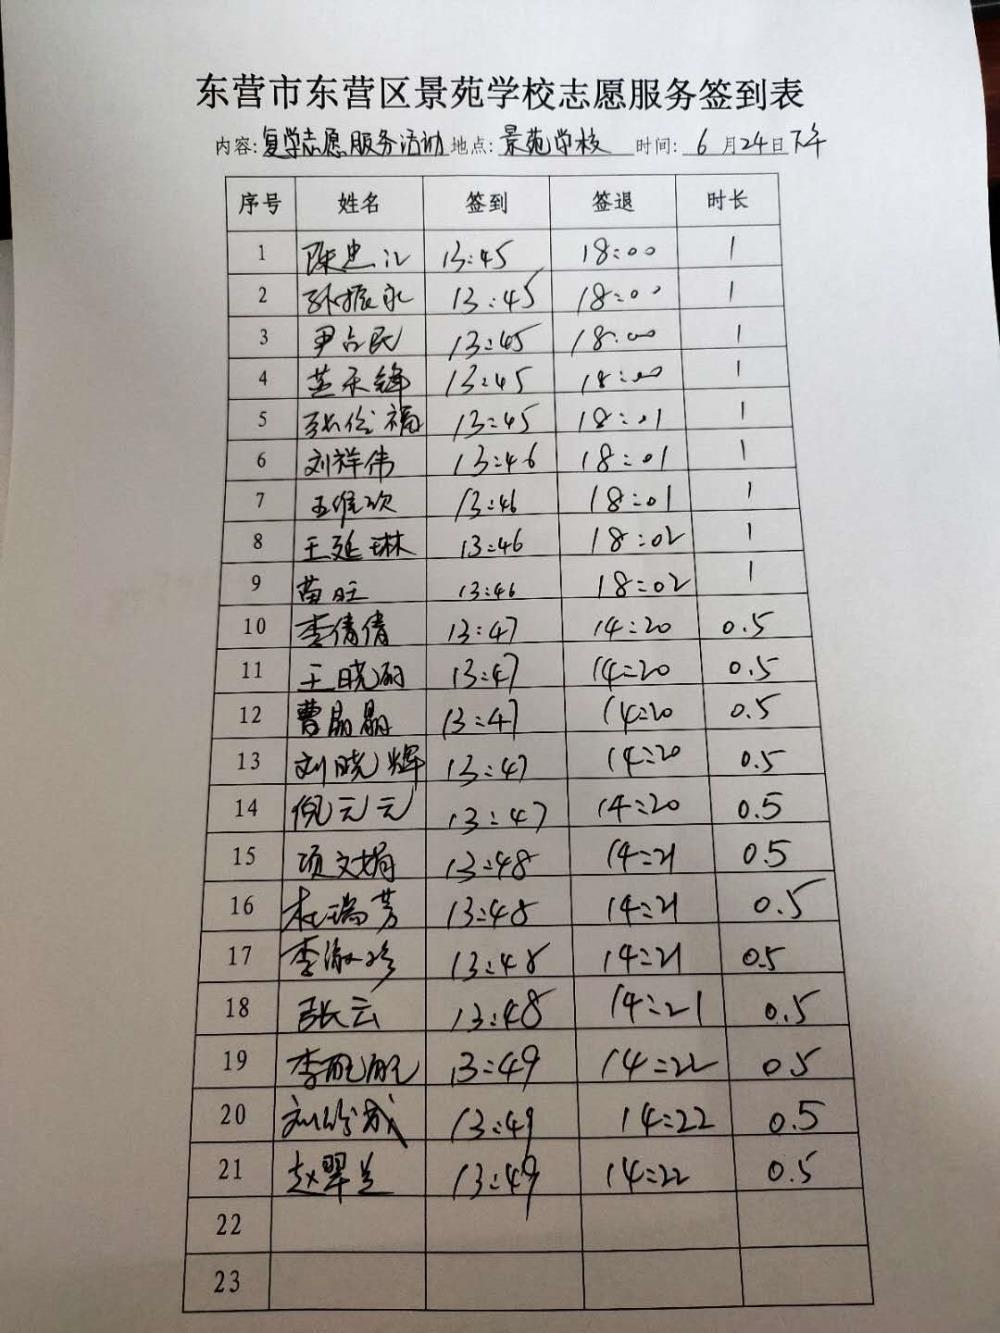 东营市东营区景苑学校志愿服务签到表
内容: 复学志愿服务活动 地点: 景苑学校 时间: 6月24日下午
序号 姓名 签到 签退 时长
1 陈忠江 13:45 18:00 1
2 孙振永 13:45 18:00 1
3 尹占民 13:45 18:00 1
4 13:45 18:00 1
5 13:45 18:01 1
6 刘祥伟 13:46 18:01 1
7 13:46 18:01 1
8 王延琳 13:46 18:02 1
9 苗旺 13:46 18:02 1
10 李倩倩 13:47 14:20 0.5
11 王晓丽 13:47 14:20 0.5
12 曹晶晶 13:47 14:20 0.5
13 刘晓辉 13:47 14:20 0.5
14 倪云云 13:47 14:20 0.5
15 项文娟 13:48 14:21 0.5
16 杜瑞芳 13:48 14:21 0.5
17 李淑珍 13:48 14:21 0.5
18 张云 13:48 14:21 0.5
19 13:49 14:22 0.5
20 13:49 14:22 0.5
21 赵翠兰 13:49 14:22 0.5
22
23